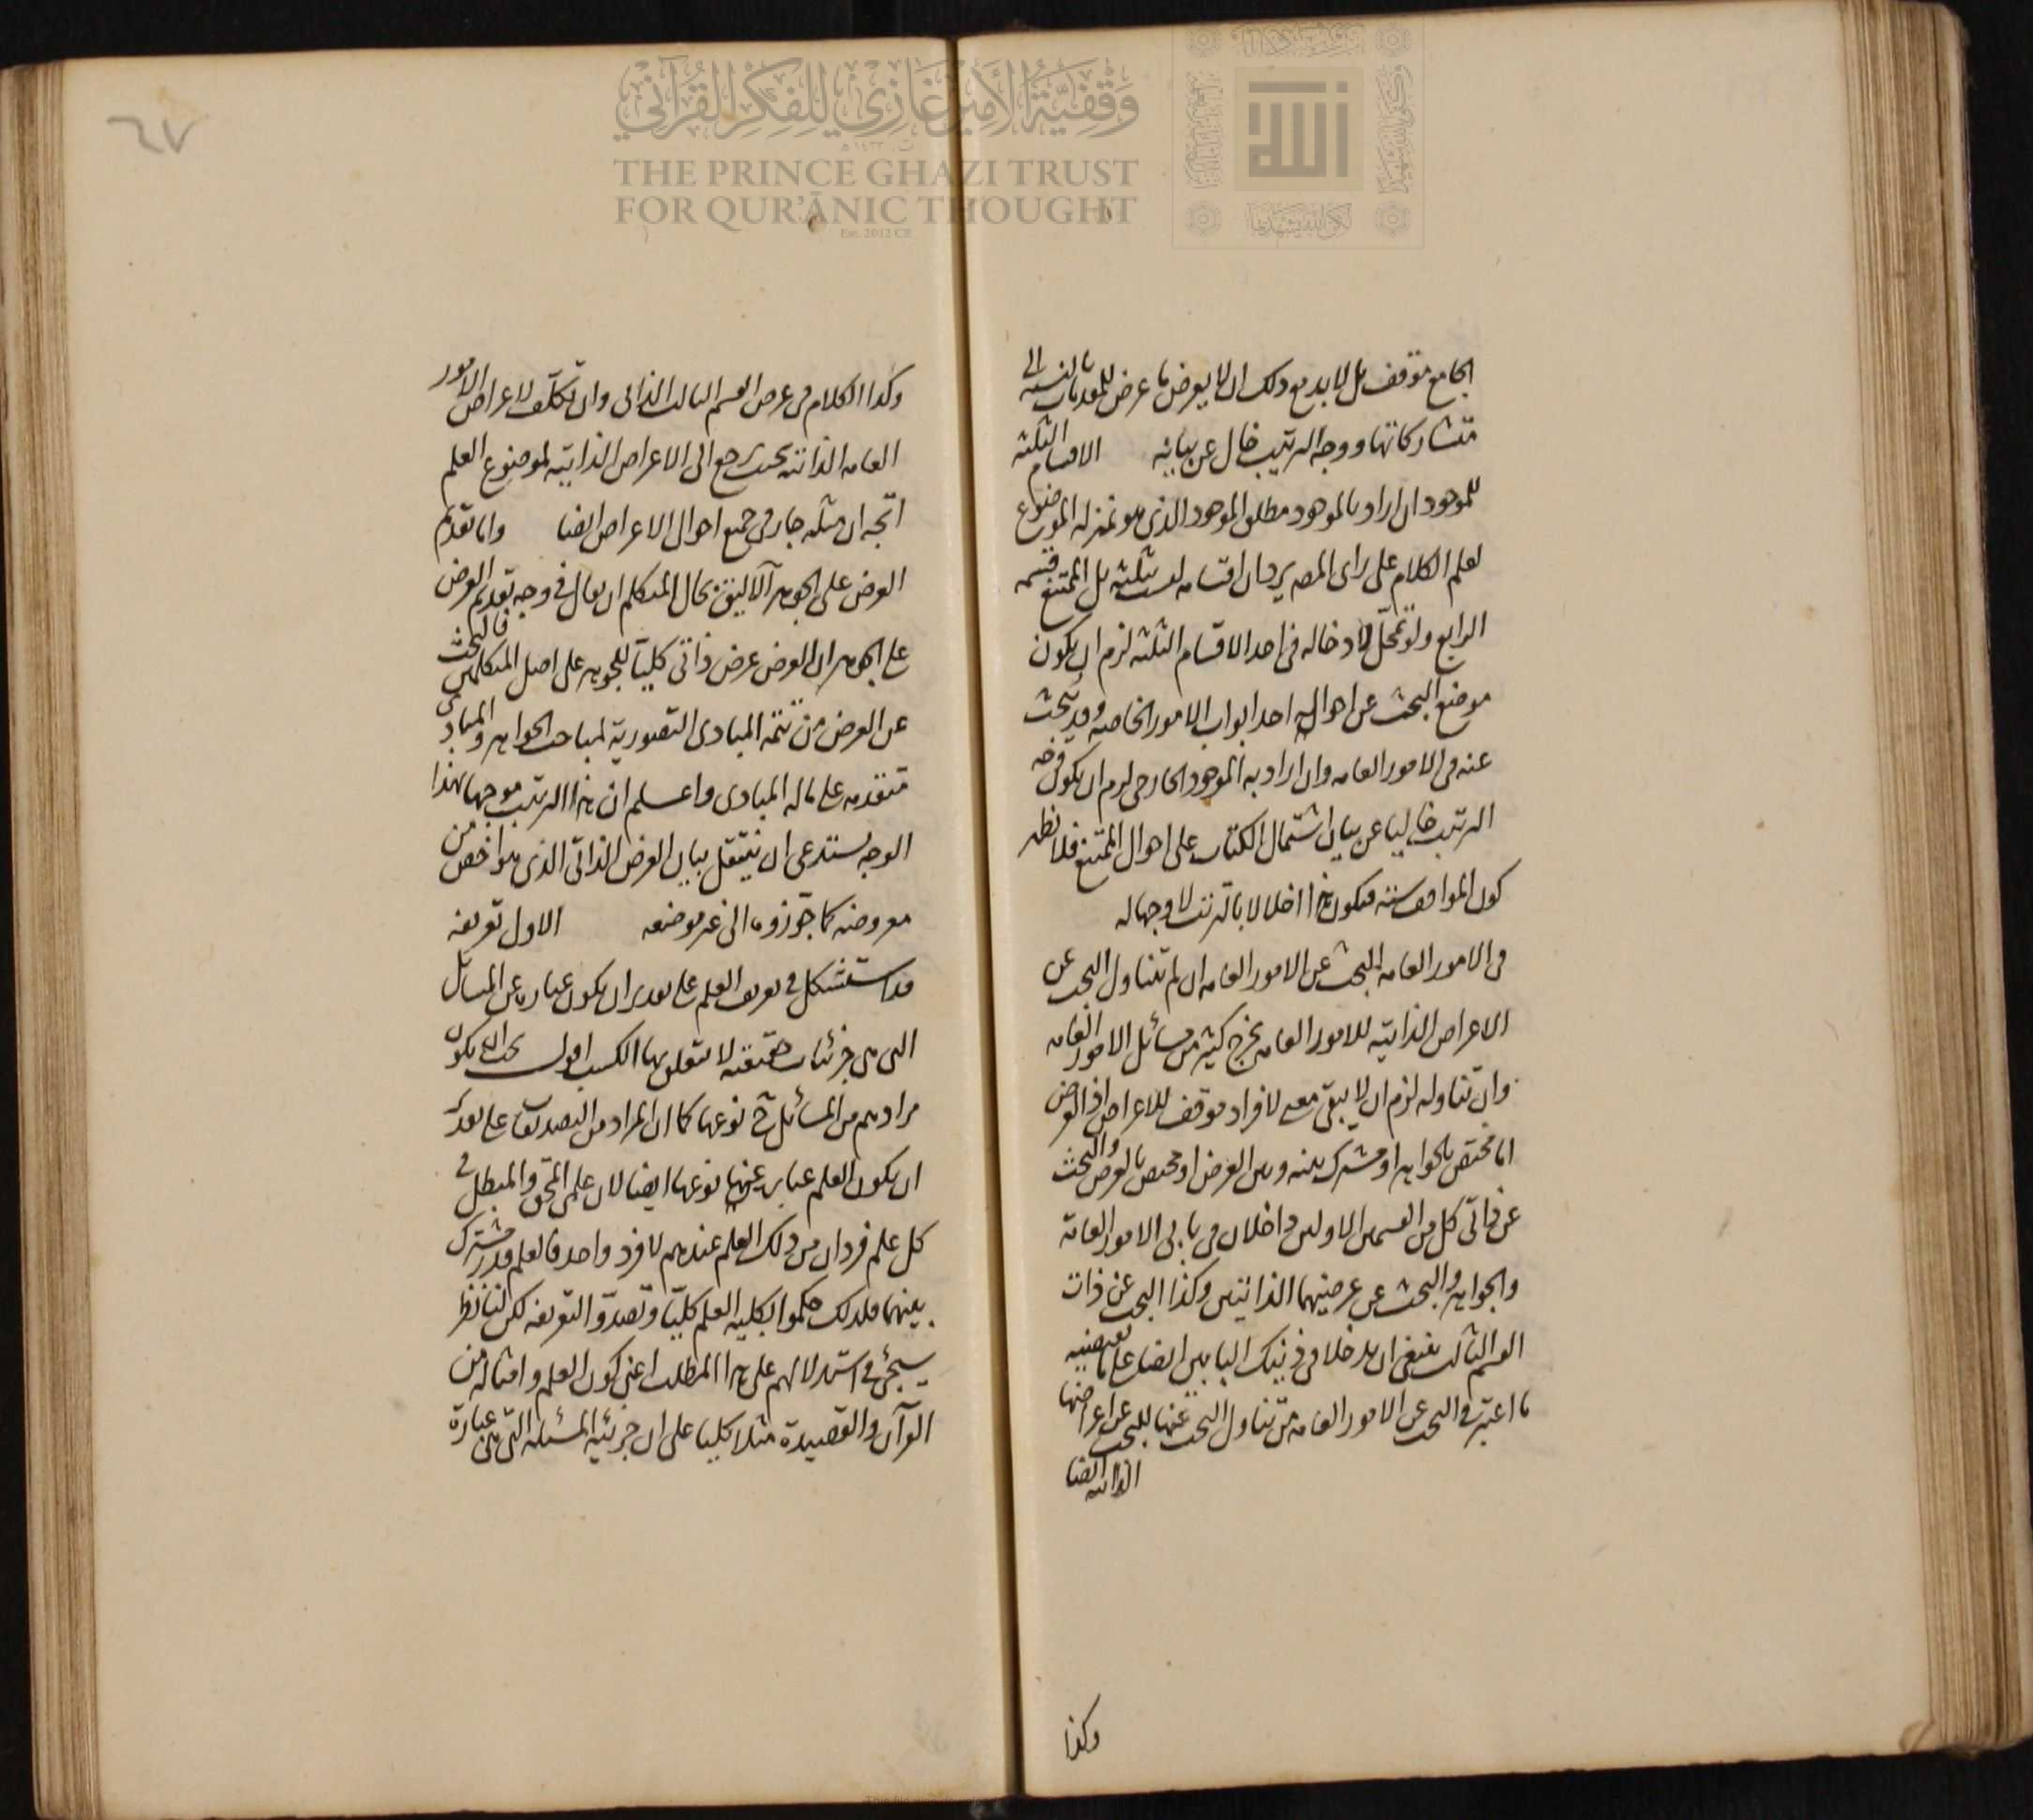 وقفية الأمير غازي للفكر القرآني
THE PRINCE GHAZI TRUST
FOR QUR'ĀNIC THOUGHT
Est. 2012 CE
الجامع موقف بل لا بد مع ذلك ان لا يعرض ما عرض للمعدمات بالنسبة الى
متشاركاتها ووجه الترتيب خال عن بيانه الاقسام الثلثة
للموجود ان اراد بالموجود مطلق الموجود الذى هو بمنزلة الموضوع
لعلم الكلام على راى المص يرد ان اقسامه ليست ثلثة بل الممتنع قسمه
الرابع ولو تمحل لادخاله فى احد الاقسام الثلثة لزم ان يكون
موضع البحث عن احواله احد ابواب الامور الخاصه وقد يبحث
عنه فى الامور العامه وان اراد به الموجود الخارجى لزم ان يكون وجه
الترتيب خاليا عن بيان اشتمال الكتاب على احوال الممتنع فلا نظهر
كون المواقف ستة فيكون هذا اخلالا بالترتيب لا وجها له
فى الامور العامه البحث عن الامور العامه ان لم تتناول البحث عن
الاعراض الذاتيه للامور العامه يخرج كثير من مسائل الامور العامه
وان تناوله لزم ان لا يبقى معه لافراد موقف للاعراض اذ العرض
اما مختص بالجواهر او مشترك بينه وبين العرض او مختص بالعرض والبحث
عن ذاتى كل من القسمين الاولين داخلان فى بابى الامور العامة
والجواهر والبحث عن عرضيهما الذاتيين وكذا البحث عن ذات
القسم الثالث ينبغى ان يدخلا فى ذينك البابين ايضا على ما يقتضيه
ما اعتبر فى البحث عن الامور العامه من تناول البحث عنها للبحث عن اعراضها
الذاتيه ايضا
وكذا
٦٧
وكذا الكلام فى عرض القسم الثالث الذاتى وان تكلف لاعراض الامور
العامه الذاتيه بحيث يرجع الى الاعراض الذاتيه لموضوع العلم
اتجه ان مثله جار فى جميع احوال الاعراض ايضا واما تقديم
العرض على الجوهر فالاليق بحال المتكلم ان يقال فى وجه تقديم العرض
على الجوهر ان العرض عرض ذاتى كليا للجوهر على اصل المتكلمين فالبحث
عن العرض من تتمة المبادى التصورية لمباحث الجواهر والمبادى
متقدمه على ماله المبادى واعلم ان هذا الترتيب موجها بهذا
الوجه يستدعى ان ينتقل بيان العرض الذاتى الذى هو اخص من
معروضه كما جوزوه الى غير موضعه الاول تعريفه
قد استشكل فى تعريف العلم على تقدير ان يكون عبارة عن المسائل
التى هى جزئيات حقيقة لا يتعلق بها الكسب اقول يجب ان يكون
مرادهم من المسائل ح نوعها كما ان المراد من التصديقات على تقدير
ان يكون العلم عبارة عنها نوعها ايضا لان علمى المحق والمبطل فى
كل علم فردان من ذلك العلم عندهم لا فرد واحد فالعلم قدر مشترك
بينهما فلذلك حكموا بكليه العلم كليا وتصدوا لتعريفه لكن لنا نظر
سيجئ فى استدلالهم على هذا المطلب اعنى كون العلم وامثاله من
القرآن والقصيدة مثلا كليا على ان جزئية المسئلة التى هى عبارة